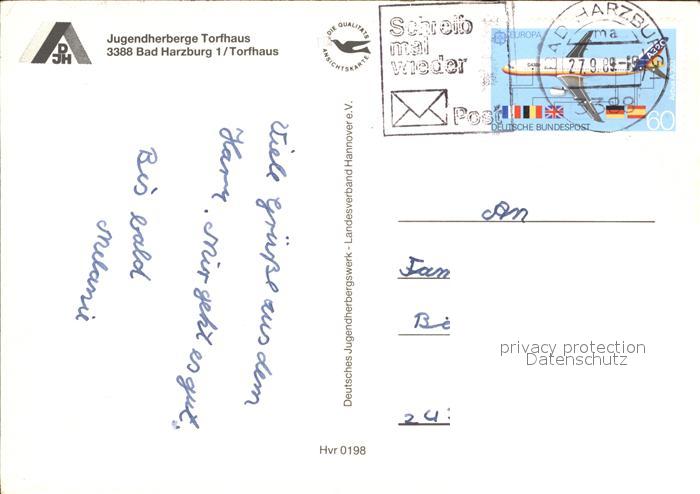 DJH
Jugendherberge Torfhaus
3388 Bad Harzburg 1/Torfhaus
DIE QUALITÄTS
ANSICHTSKARTE
Schreib
mal
wieder
Post
EUROPA
BAD HARZBURG
ma
27.9.89-19
3388
DEUTSCHE BUNDESPOST
60
Viele Grüße aus dem
Harz. Mir geht es gut.
Bis bald
Melanie
Deutsches Jugendherbergswerk - Landesverband Hannover e.V.
An
Fam
Be
privacy protection
Datenschutz
Hvr 0198